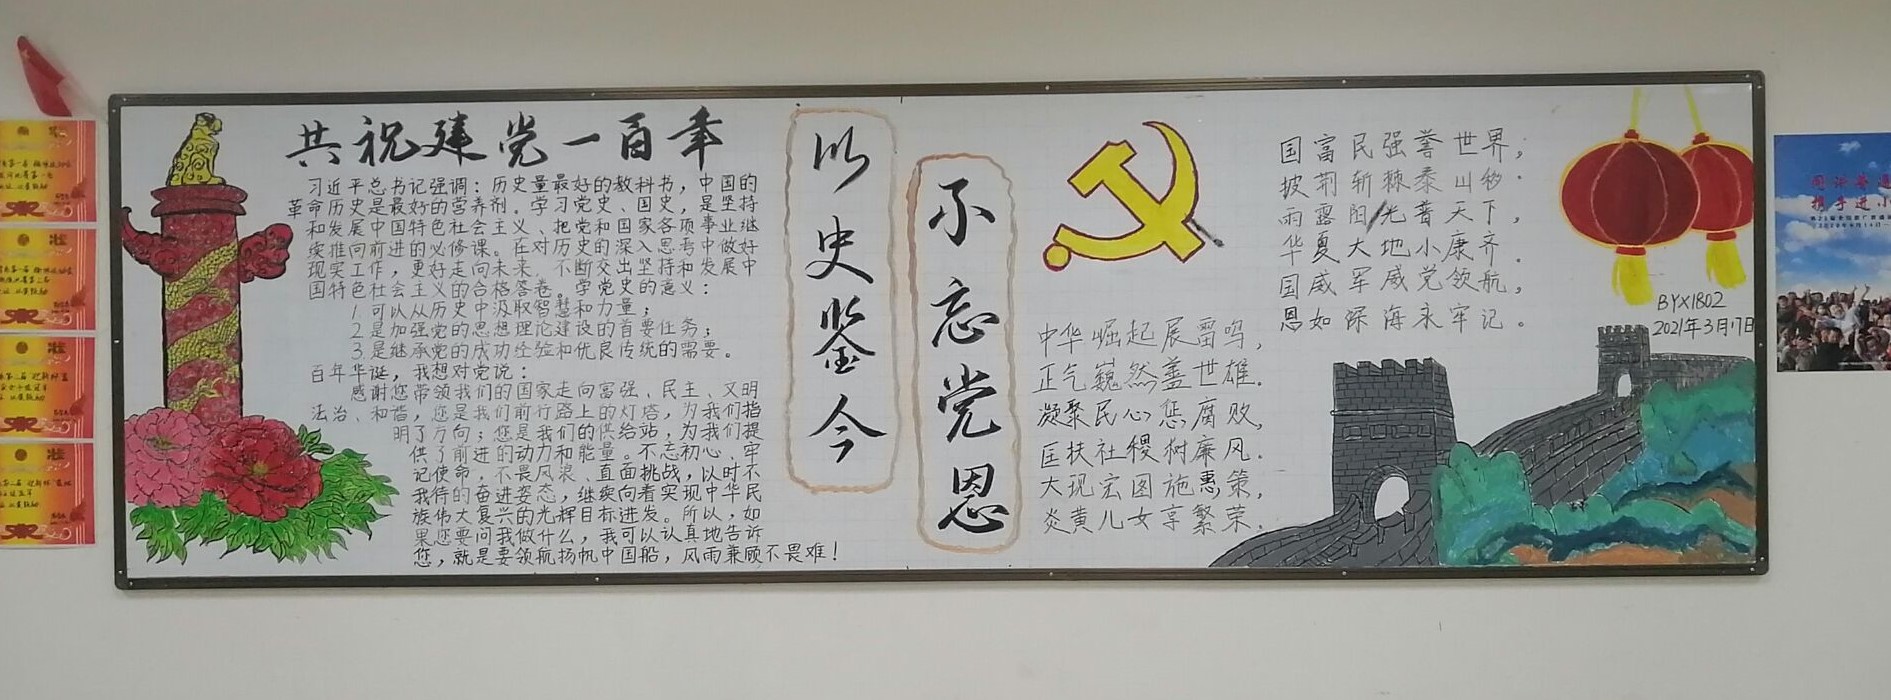 共祝建党一百年
习近平总书记强调：历史量最好的教科书，中国的
革命历史是最好的营养剂。学习党史、国史，是坚持
和发展中国特色社会主义、把党和国家各项事业继
续推向前进的必修课。在对历史的深入思考中做好
现实工作，更好走向未来，不断交出坚持和发展中
国特色社会主义的合格答卷。学党史的意义：
1.可以从历史中汲取智慧和力量；
2.是加强党的思想理论建设的首要任务；
3.是继承党的成功经验和优良传统的需要。
百年华诞，我想对党说：
感谢您带领我们的国家走向富强、民主、文明
法治、和谐，您是我们前行路上的灯塔，为我们指
明了方向；您是我们的供给站，为我们提
供了前进的动力和能量。不忘初心、牢
记使命，不畏风浪、直面挑战，以时不
我待的奋进姿态，继续向着实现中华民
族伟大复兴的光辉目标进发。所以，如
果您要问我做什么，我可以认真地告诉
您，就是要领航扬帆中国船，风雨兼顾不畏难！
以史鉴今
不忘党恩
中华崛起展雷鸣，
正气巍然盖世雄.
凝聚民心惩腐败，
匡扶社稷树廉风.
大现宏图施惠策，
炎黄儿女享繁荣.
国富民强誉世界；
披荆斩棘泰山移.
雨露阳光普天下，
华夏大地小康齐.
国威军威党领航，
恩如深海永牢记。
BYX1802
2021年3月17日